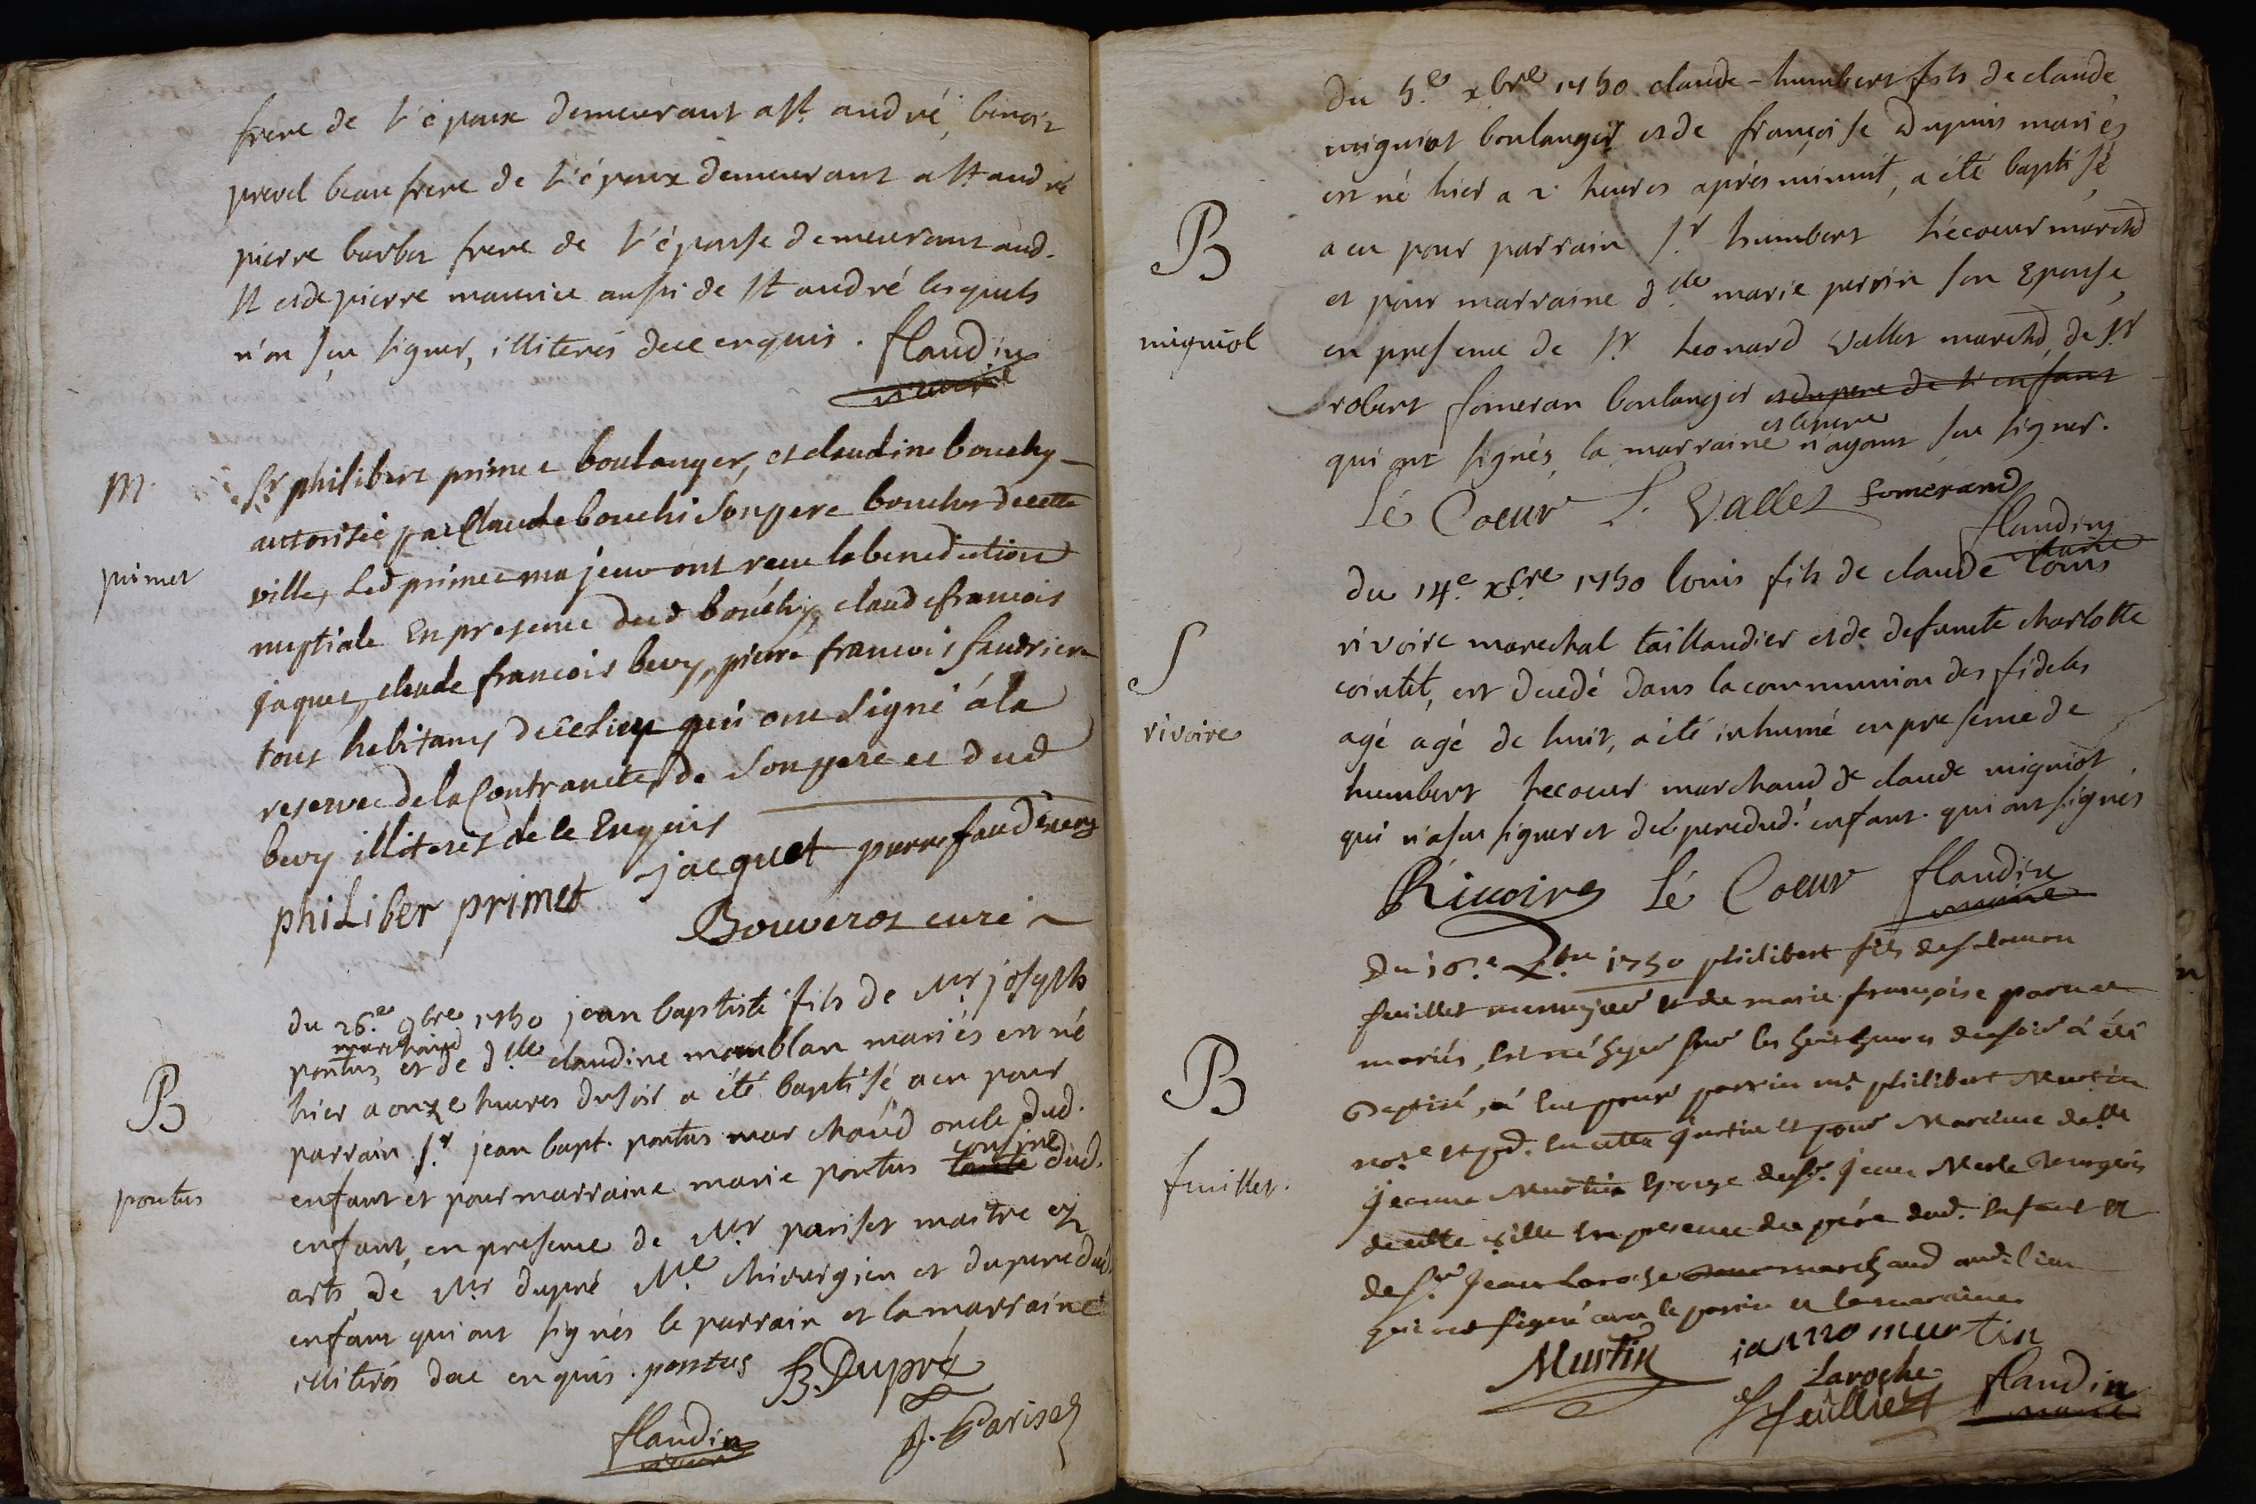 frere de l'époux demeurant a st. andré, benoit
prevel beau frere de l'époux demeurant a st andré
pierre barbet frere de l'épouse demeurant aud.
st et de pierre maurice aussi de st andré lesquels
n'on sçu signer, illiterés de ce enquis. flandin
vicaire
M.
primet
Sr. philibert primet boulanger, et claudine bouchy
autorisée par Claude bouchi son pere boucher de cette
ville, led primet majeur ont recu la benediction
nuptiale En presence dud bouchy, claude francois
jaquet, claude francois bevy, pierre francois faudriere
tous habitans de ce lieu qui ont signé á la
reserve de la Contractée, de son pere et dud
bevy illiterés de ce Enquis
jacquet pierre faudriere
philiber primet
Bouverot curé
B
pontus
du 26.e 9bre 1750 jean baptiste fils de Mr. joseph
marchand
pontus, et de dlle claudine monblan mariés est né
hier a onze heures du soir a été baptisé, a eu pour
parrain sr. jean bapt. pontus marchand oncle dud.
cousine
enfant et pour marraine marie pontus tante dud.
enfant, en presence de Mr pariset maitre ez
arts, de Mr dupré Me. chirurgien et du pere dud.
enfant qui ont signés le parrain et la marraine
illiterés de ce enquis. pontus B. Dupré
flandin
vicaire
J. Pariset
B
migniot
du 5.e xbre 1750 claude-humbert fils de claude
migniot boulanger et de françoise dupuis mariés
est né hier a 2 heures après minuit, a été baptisé
a eu pour parrain sr. humbert lécoeur marchd
et pour marraine dlle marie perrin son Epouse,
en presence de sr. Leonard Vallet marchd, de sr
robert someran boulanger et du pere de l'enfant
et le pere
qui ont signés, la marraine n'ayant sçu signer.
Lé Coeur L. Vallet Somerand
flandin
vicaire
S
rivoire
du 14.e xbre 1750 louis fils de claude louis
rivoire marechal taillandier et de defuncte charlotte
cointet, est decedé dans la communion des fideles
agé agé de huit, a été inhumé en presence de
humbert lecoeur marchand de claude migniot
qui n'a sçu signer et de le pere dud. enfant. qui ont signés
Rivoire Lé Coeur flandin
vicaire
B
feuillet.
Du 16.e Xbre 1750 philibert fils de salomon
feuillet menuisier et de marie françoise
mariés, est né hyer sur les huit heures du soir á été
Baptisé, á eu pour parrain mr. philibert Martin
not.e et pour Maraine delle
jeanne Martin Epouse de sr. jean Merle Bourgeois
de cette ville en presence du pére dud. enfant et
de sr. jean Laroche marchand aud. lieu
qui ont signé avec le parrin et la maraine.
Martin janno martin
Laroche
S feuilliet flandin
vicaire